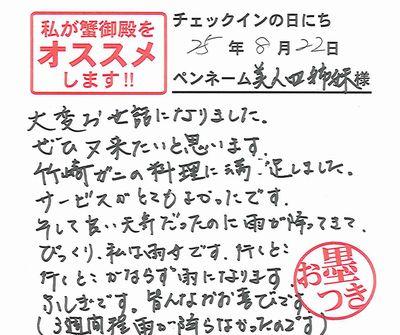 私が蟹御殿を
オススメ
します!!
チェックインの日にち
25年8月22日
ペンネーム 美人四姉妹 様
大変お世話になりました。
ぜひ又来たいと思います。
竹崎ガニの料理に満足しました。
サービスがとてもよかったです。
そして良い天気だったのに雨が降ってきて、
びっくり、私は雨女です。行くとこ
行くとこかならず雨になります
ふしぎです。皆んながお喜びです
(3週間程雨が降らなかったのです)
お墨つき